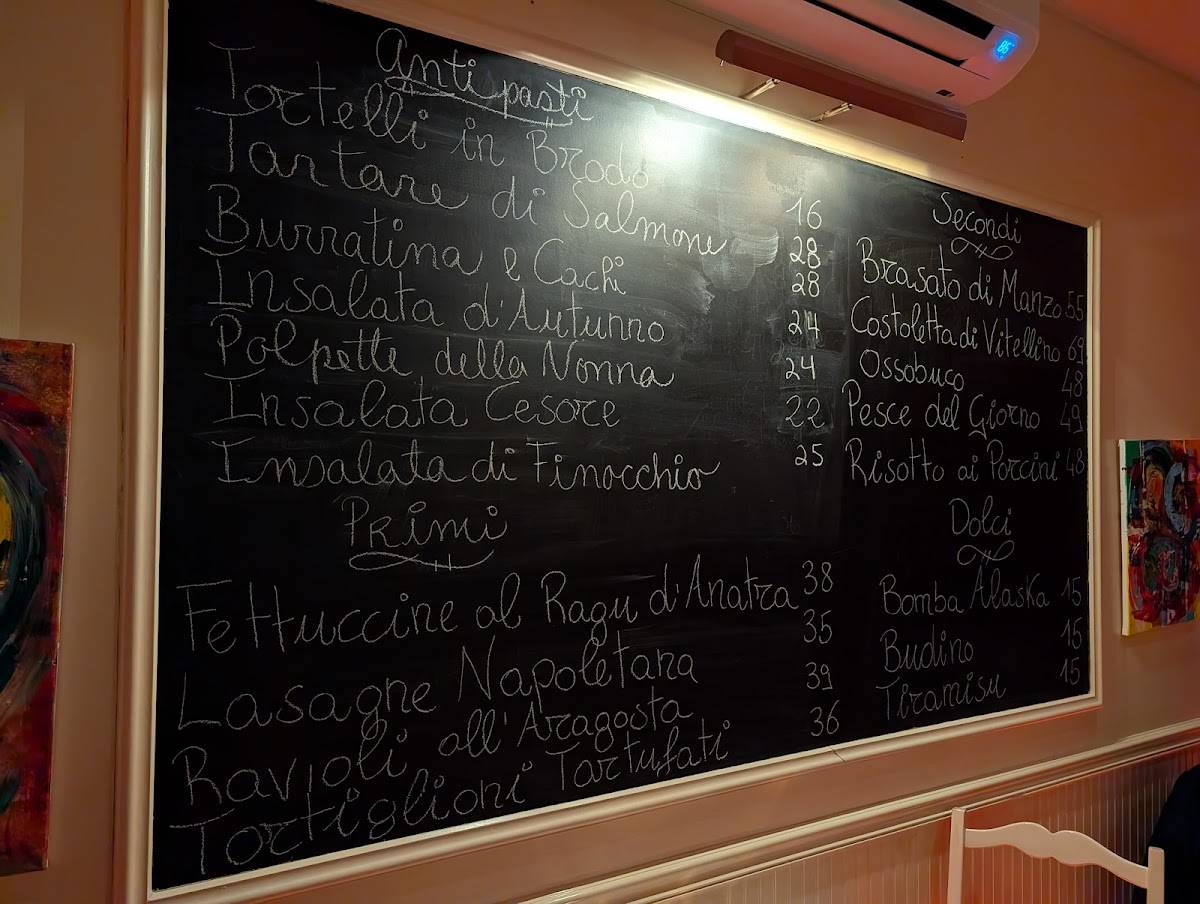 Antipasti
Tortelli in Brodo 16
Tartare di Salmone 28
Burratina e Cachi 28
Insalata d'Autunno 24
Polpette della Nonna 24
Insalata Cesare 22
Insalata di Finocchio 25
Primi
Fettuccine al Ragu d'Anatra 38
Lasagne Napoletana 35
Ravioli all'Aragosta 39
Tortiglioni Tartufati 36
Secondi
Brasato di Manzo 55
Costoletta di Vitellino 69
Ossobuco 48
Pesce del Giorno 49
Risotto ai Porcini 48
Dolci
Bomba Alaska 15
Budino 15
Tiramisu 15